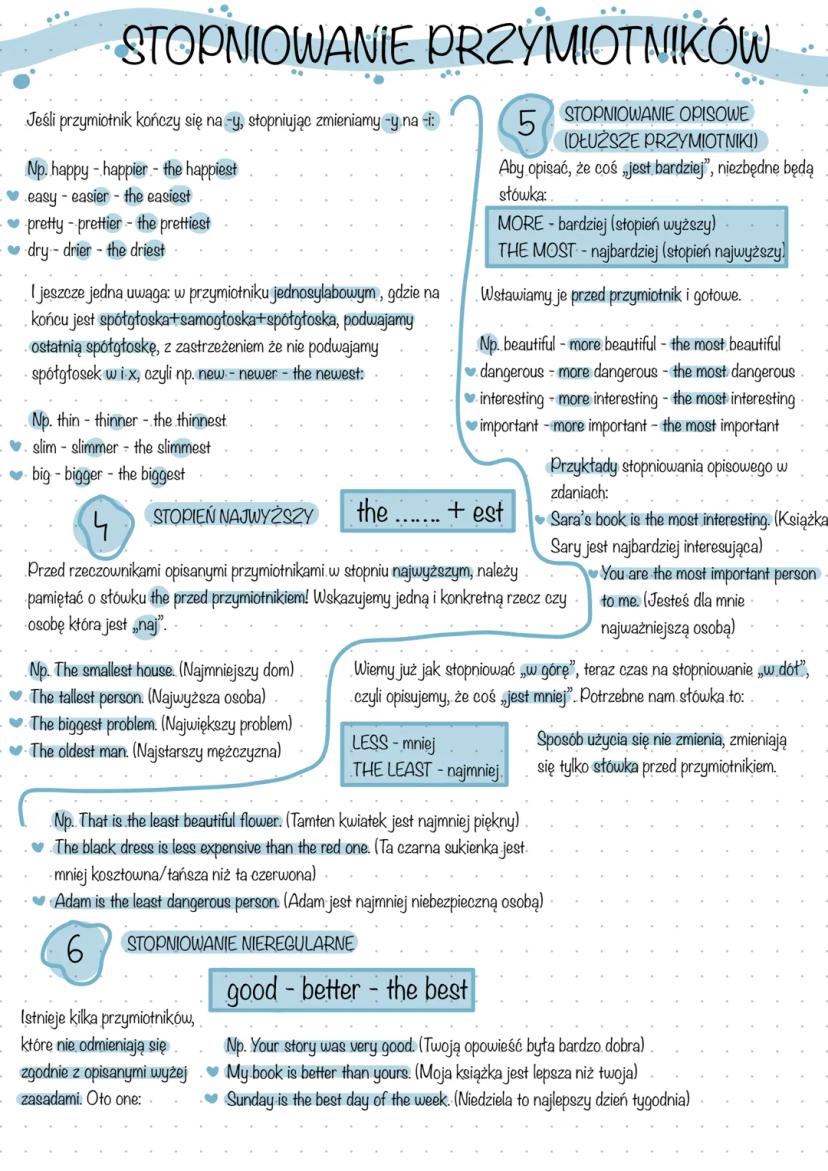 STOPNIOWANIE PRZYMIOTNIKÓW
Jeśli przymiotnik kończy się na -y, stopniując zmieniamy -y na -i:
Np. happy - happier - the happiest
easy - easier - the easiest
pretty - prettier - the prettiest
dry - drier - the driest
I jeszcze jedna uwaga: w przymiotniku jednosylabowym , gdzie na
końcu jest spółgłoska+samogłoska+spółgłoska, podwajamy
ostatnią spółgłoskę, z zastrzeżeniem że nie podwajamy
spółgłosek w i x, czyli np. new - newer - the newest:
Np. thin - thinner - the thinnest
slim - slimmer - the slimmest
big - bigger - the biggest
4 STOPIEŃ NAJWYŻSZY
the ....... + est
Przed rzeczownikami opisanymi przymiotnikami w stopniu najwyższym, należy
pamiętać o słówku the przed przymiotnikiem! Wskazujemy jedną i konkretną rzecz czy
osobę która jest „naj”.
Np. The smallest house. (Najmniejszy dom)
The tallest person. (Najwyższa osoba)
The biggest problem. (Największy problem)
The oldest man. (Najstarszy mężczyzna)
5 STOPNIOWANIE OPISOWE
(DŁUŻSZE PRZYMIOTNIKI)
Aby opisać, że coś „jest bardziej”, niezbędne będą
słówka:
MORE - bardziej (stopień wyższy)
THE MOST - najbardziej (stopień najwyższy)
Wstawiamy je przed przymiotnik i gotowe.
Np. beautiful - more beautiful - the most beautiful
dangerous - more dangerous - the most dangerous
interesting - more interesting - the most interesting
important - more important - the most important
Przykłady stopniowania opisowego w
zdaniach:
Sara's book is the most interesting. (Książka
Sary jest najbardziej interesująca)
You are the most important person
to me. (Jesteś dla mnie
najważniejszą osobą)
Wiemy już jak stopniować „w górę”, teraz czas na stopniowanie „w dół”,
czyli opisujemy, że coś „jest mniej”. Potrzebne nam słówka to:
LESS - mniej
THE LEAST - najmniej
Sposób użycia się nie zmienia, zmieniają
się tylko słówka przed przymiotnikiem.
Np. That is the least beautiful flower. (Tamten kwiatek jest najmniej piękny)
The black dress is less expensive than the red one. (Ta czarna sukienka jest
mniej kosztowna/tańsza niż ta czerwona)
Adam is the least dangerous person. (Adam jest najmniej niebezpieczną osobą)
6 STOPNIOWANIE NIEREGULARNE
good - better - the best
Istnieje kilka przymiotników,
które nie odmieniają się
zgodnie z opisanymi wyżej
zasadami. Oto one:
Np. Your story was very good. (Twoją opowieść była bardzo dobra)
My book is better than yours. (Moja książka jest lepsza niż twoja)
Sunday is the best day of the week. (Niedziela to najlepszy dzień tygodnia)